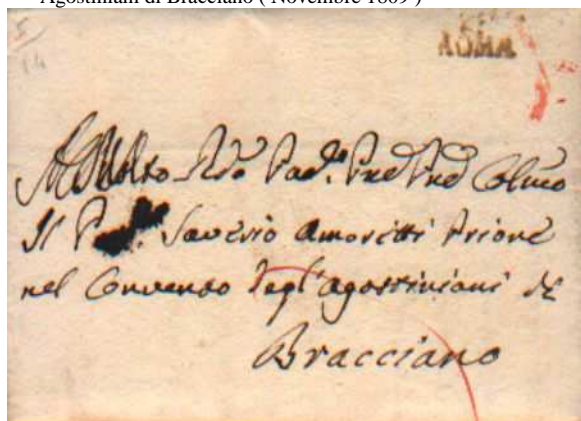 Agostiniani di Bracciano ( Novembre 1809 )
5
14
ROMA
Al Molto Rdo Padre Prod Prod Colmo
Il P. Saverio Amoretti Priore
nel Convento degl'agostiniani di
Bracciano